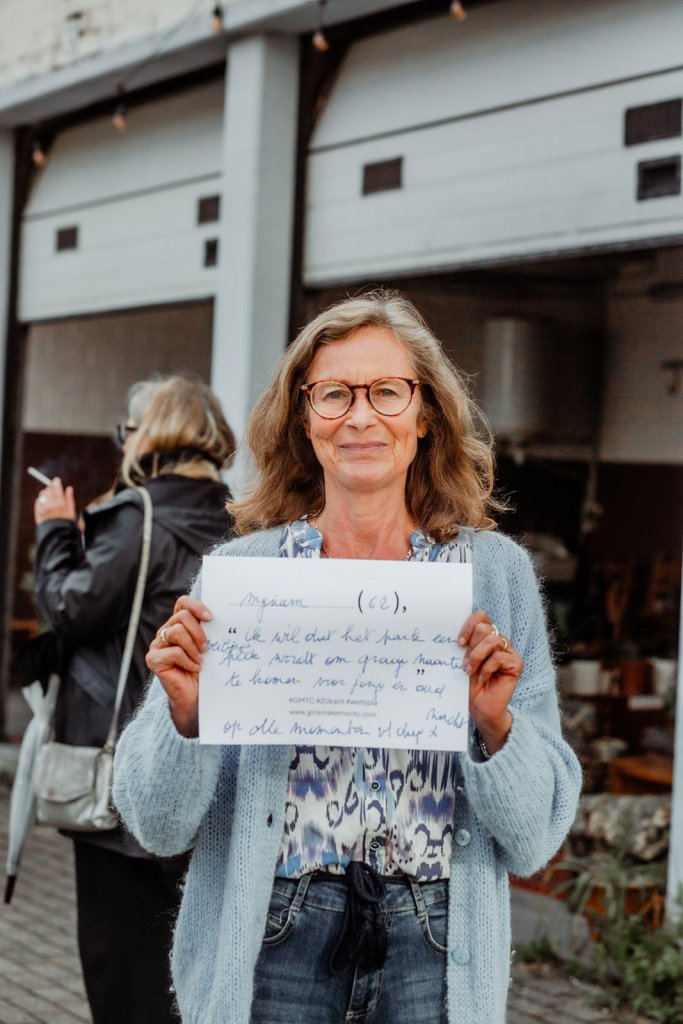 Myriam (62),
"ik wil dat het park een
veilige
plek wordt om graag naartoe
te komen voor jong en oud
#GMTC #ZIJkant #wetopia
www.girlsmakethecity.com
op alle momenten vd dag
nacht